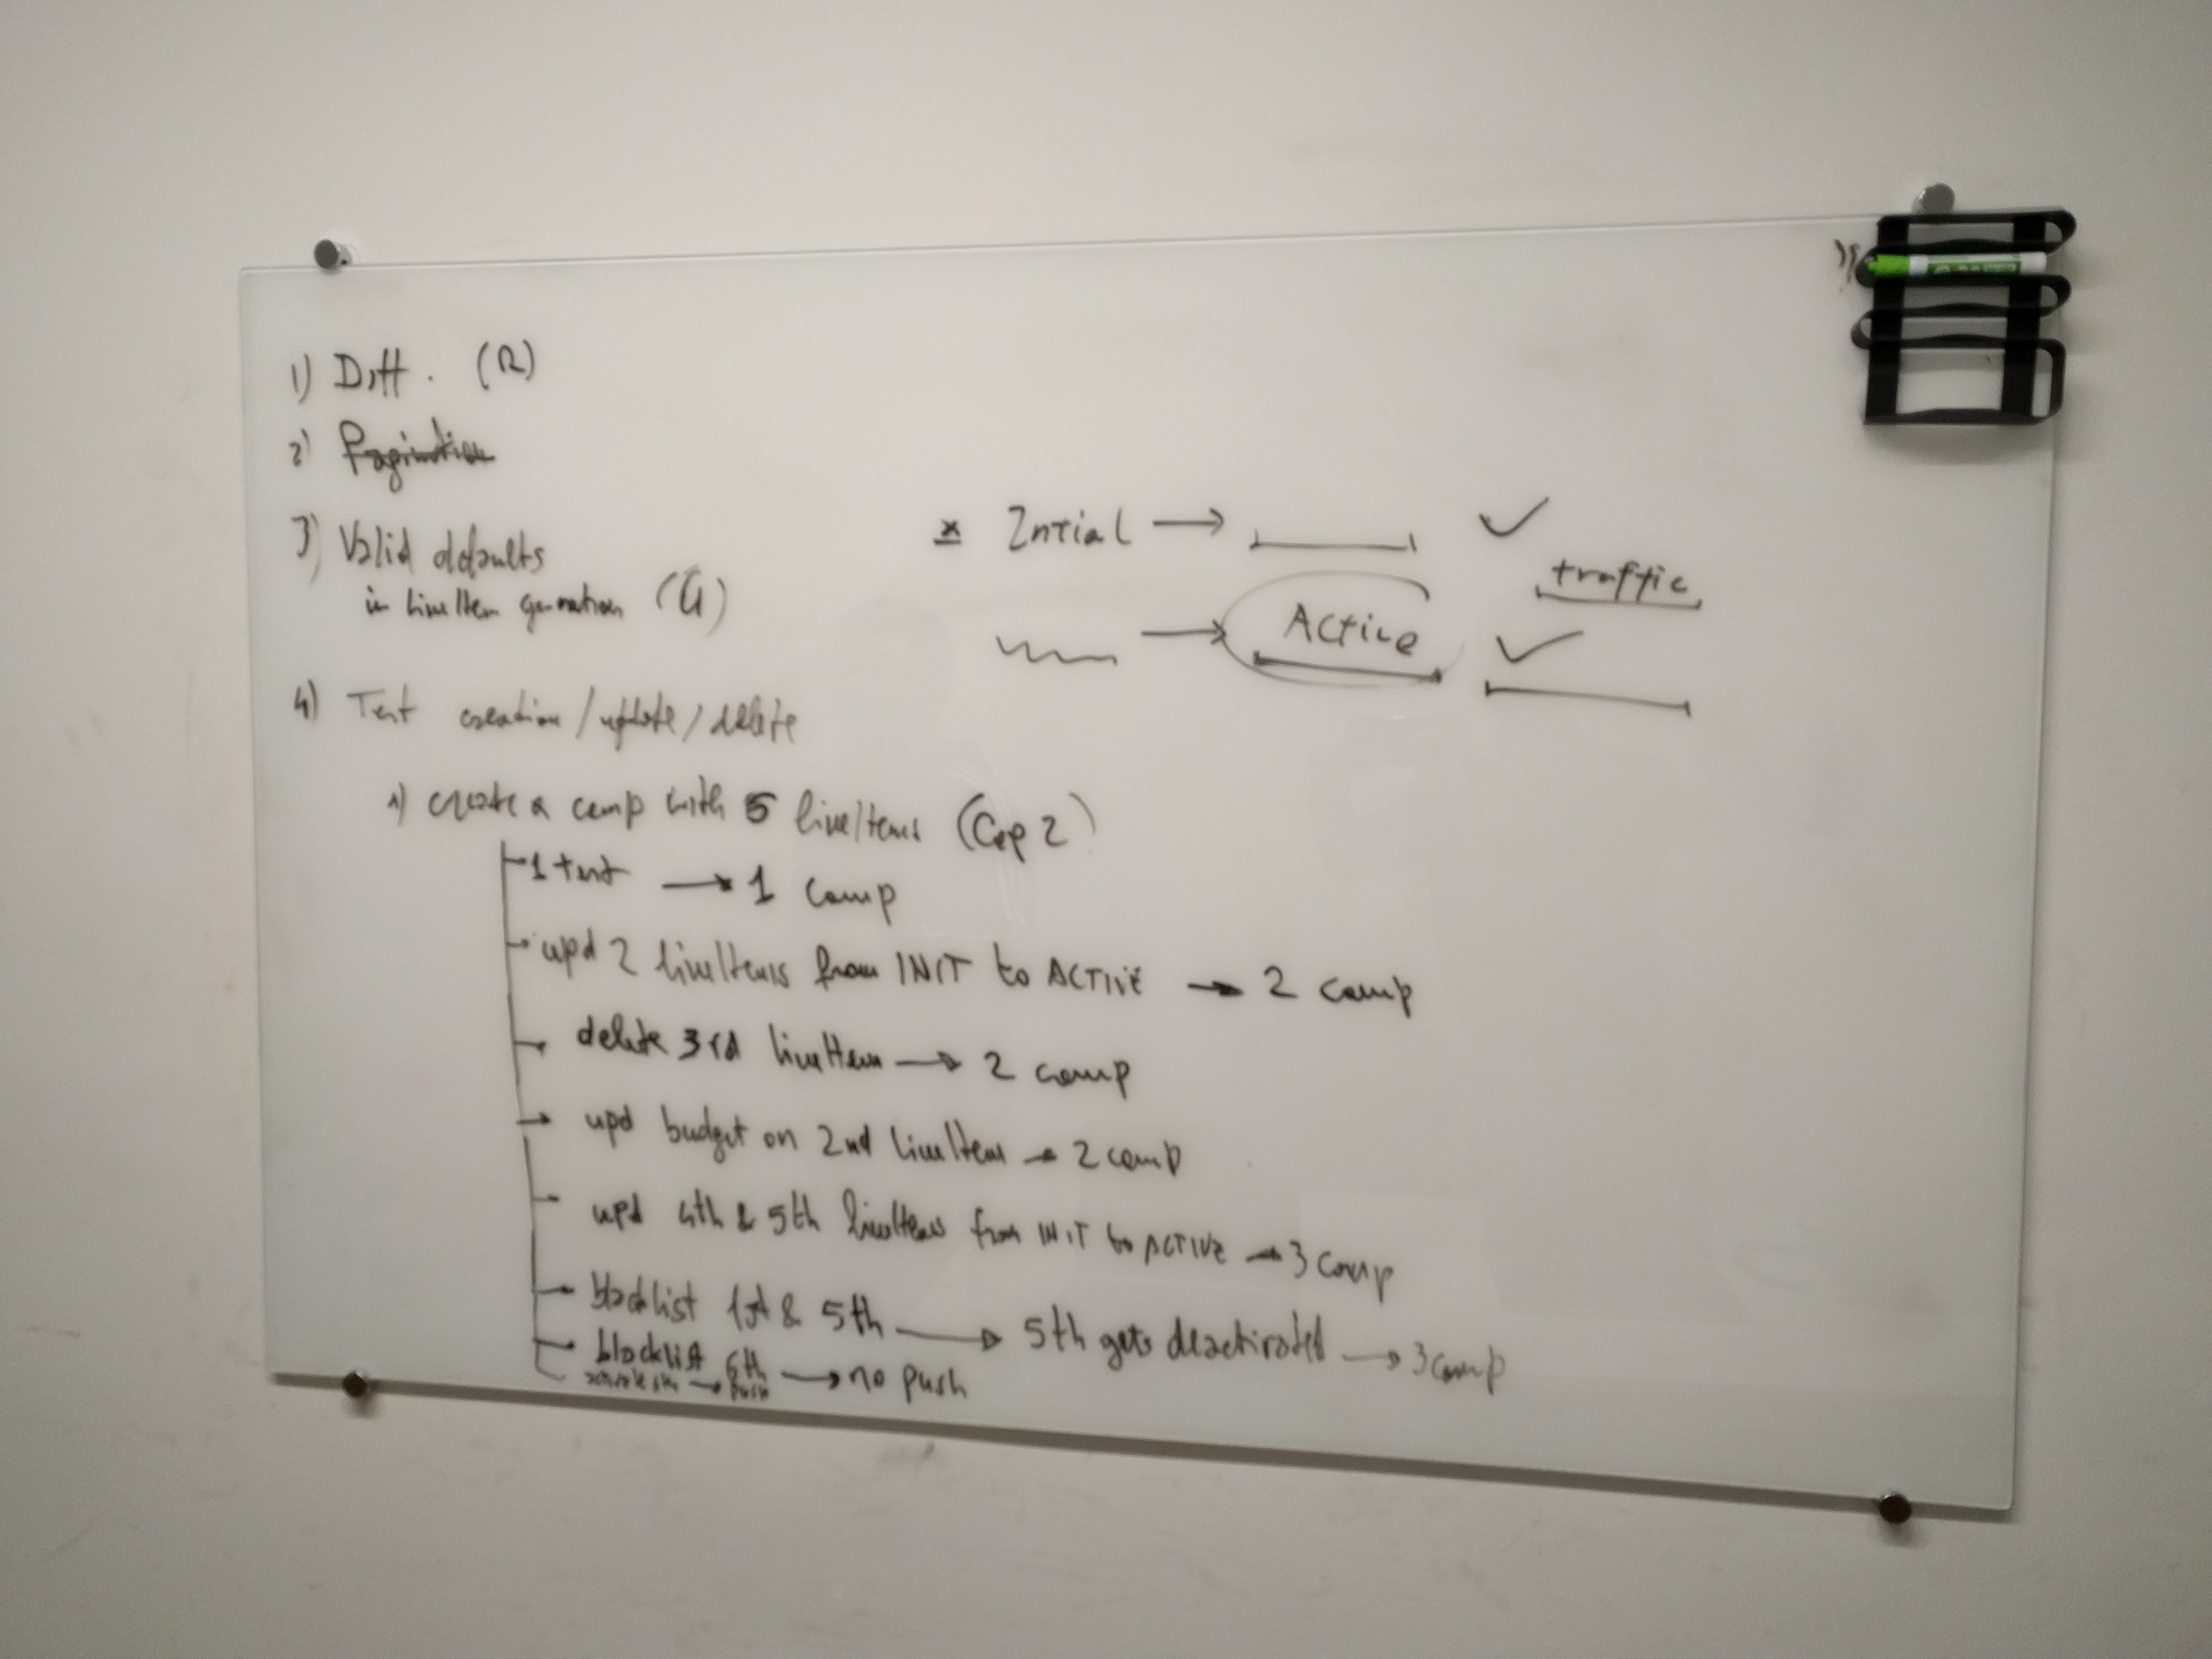 1) Diff. (R)
2) Pagination
3) Valid defaults
in lineItem generation (G)
4) Test creation / update / delete
1) create a camp with 5 lineItems (Cap 2)
1 test → 1 camp
upd 2 lineItems from INIT to ACTIVE → 2 camp
delete 3rd lineItem → 2 camp
upd budget on 2nd lineItem → 2 camp
upd 4th & 5th lineItems from INIT to ACTIVE → 3 camp
blacklist 1st & 5th → 5th gets deactivated → 3 camp
blacklist 6th → no push
→ push
* Intial →
✓
traffic
→ Active ✓